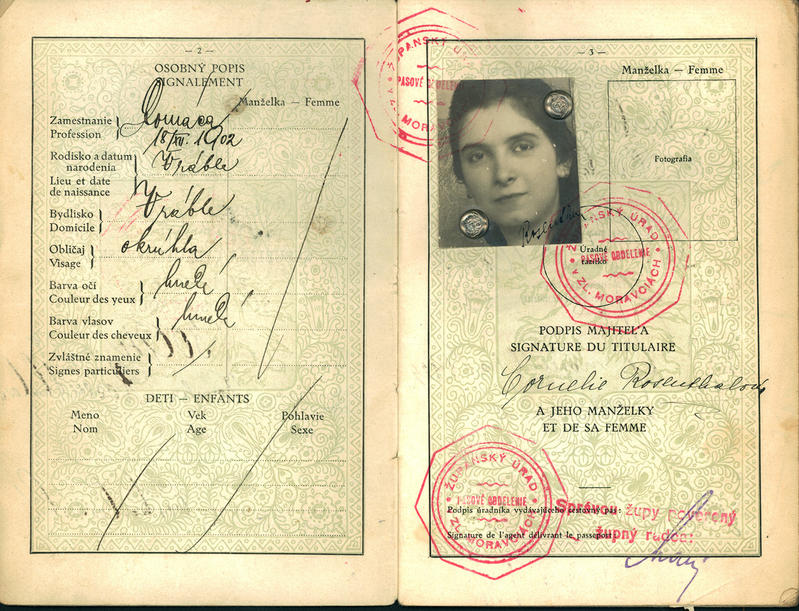 — 2 —
OSOBNÝ POPIS
SIGNALEMENT
Manželka — Femme
Zamestnanie
Profession
Domaca
18/XII. 1902
Rodisko a datum
narodenia
Vráble
Lieu et date
de naissance
Bydlisko
Domicile
Vráble
Obličaj
Visage
okrúhla
Barva očí
Couleur des yeux
hnedé
Barva vlasov
Couleur des cheveux
hnedé
Zvláštné znamenie
Signes particuliers
DETI — ENFANTS
Meno
Nom
Vek
Age
Pohlavie
Sexe
— 3 —
Manželka — Femme
Fotografia
Úradné
ŽUPANSKÝ ÚRAD
PASOVÉ ODDELENIE
V ZL. MORAVCIACH
PODPIS MAJITEĽA
SIGNATURE DU TITULAIRE
Cornelie Rosenthalová
A JEHO MANŽELKY
ET DE SA FEMME
ŽUPANSKÝ ÚRAD
PASOVÉ ODDELENIE
V ZL. MORAVCIACH
Správou župy poverený
Podpis úradníka vydávajúceho cestovný pas:
župný radca:
Signature de l'agent délivrant le passeport